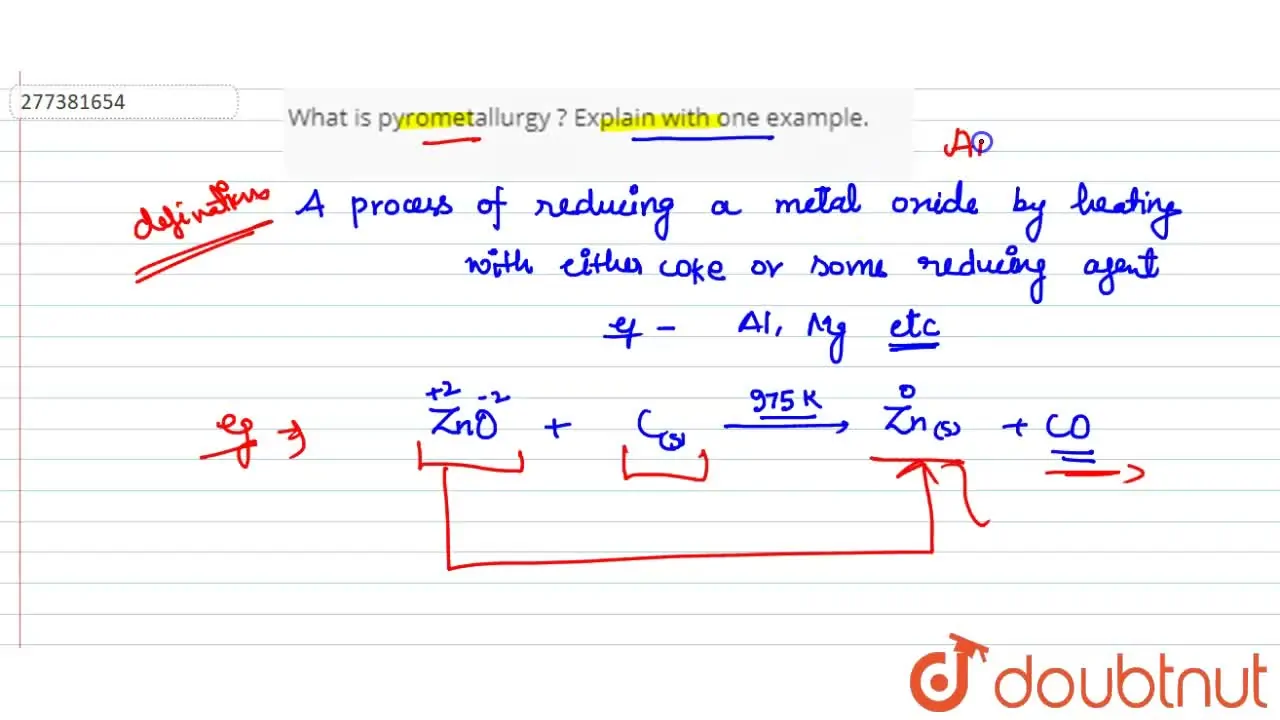 277381654
What is pyrometallurgy ? Explain with one example.
Al
definitions
A process of reducing a metal oxide by heating
with either coke or some reducing agent
eg - Al, Mg etc
+2 -2 975 K 0
eg → ZnO + C(s) → Zn(s) + CO
doubtnut